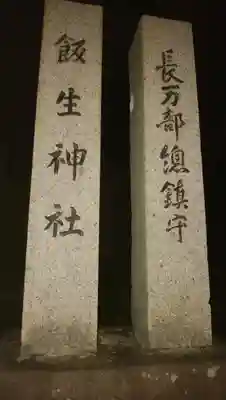 長万部總鎮守
飯生神社